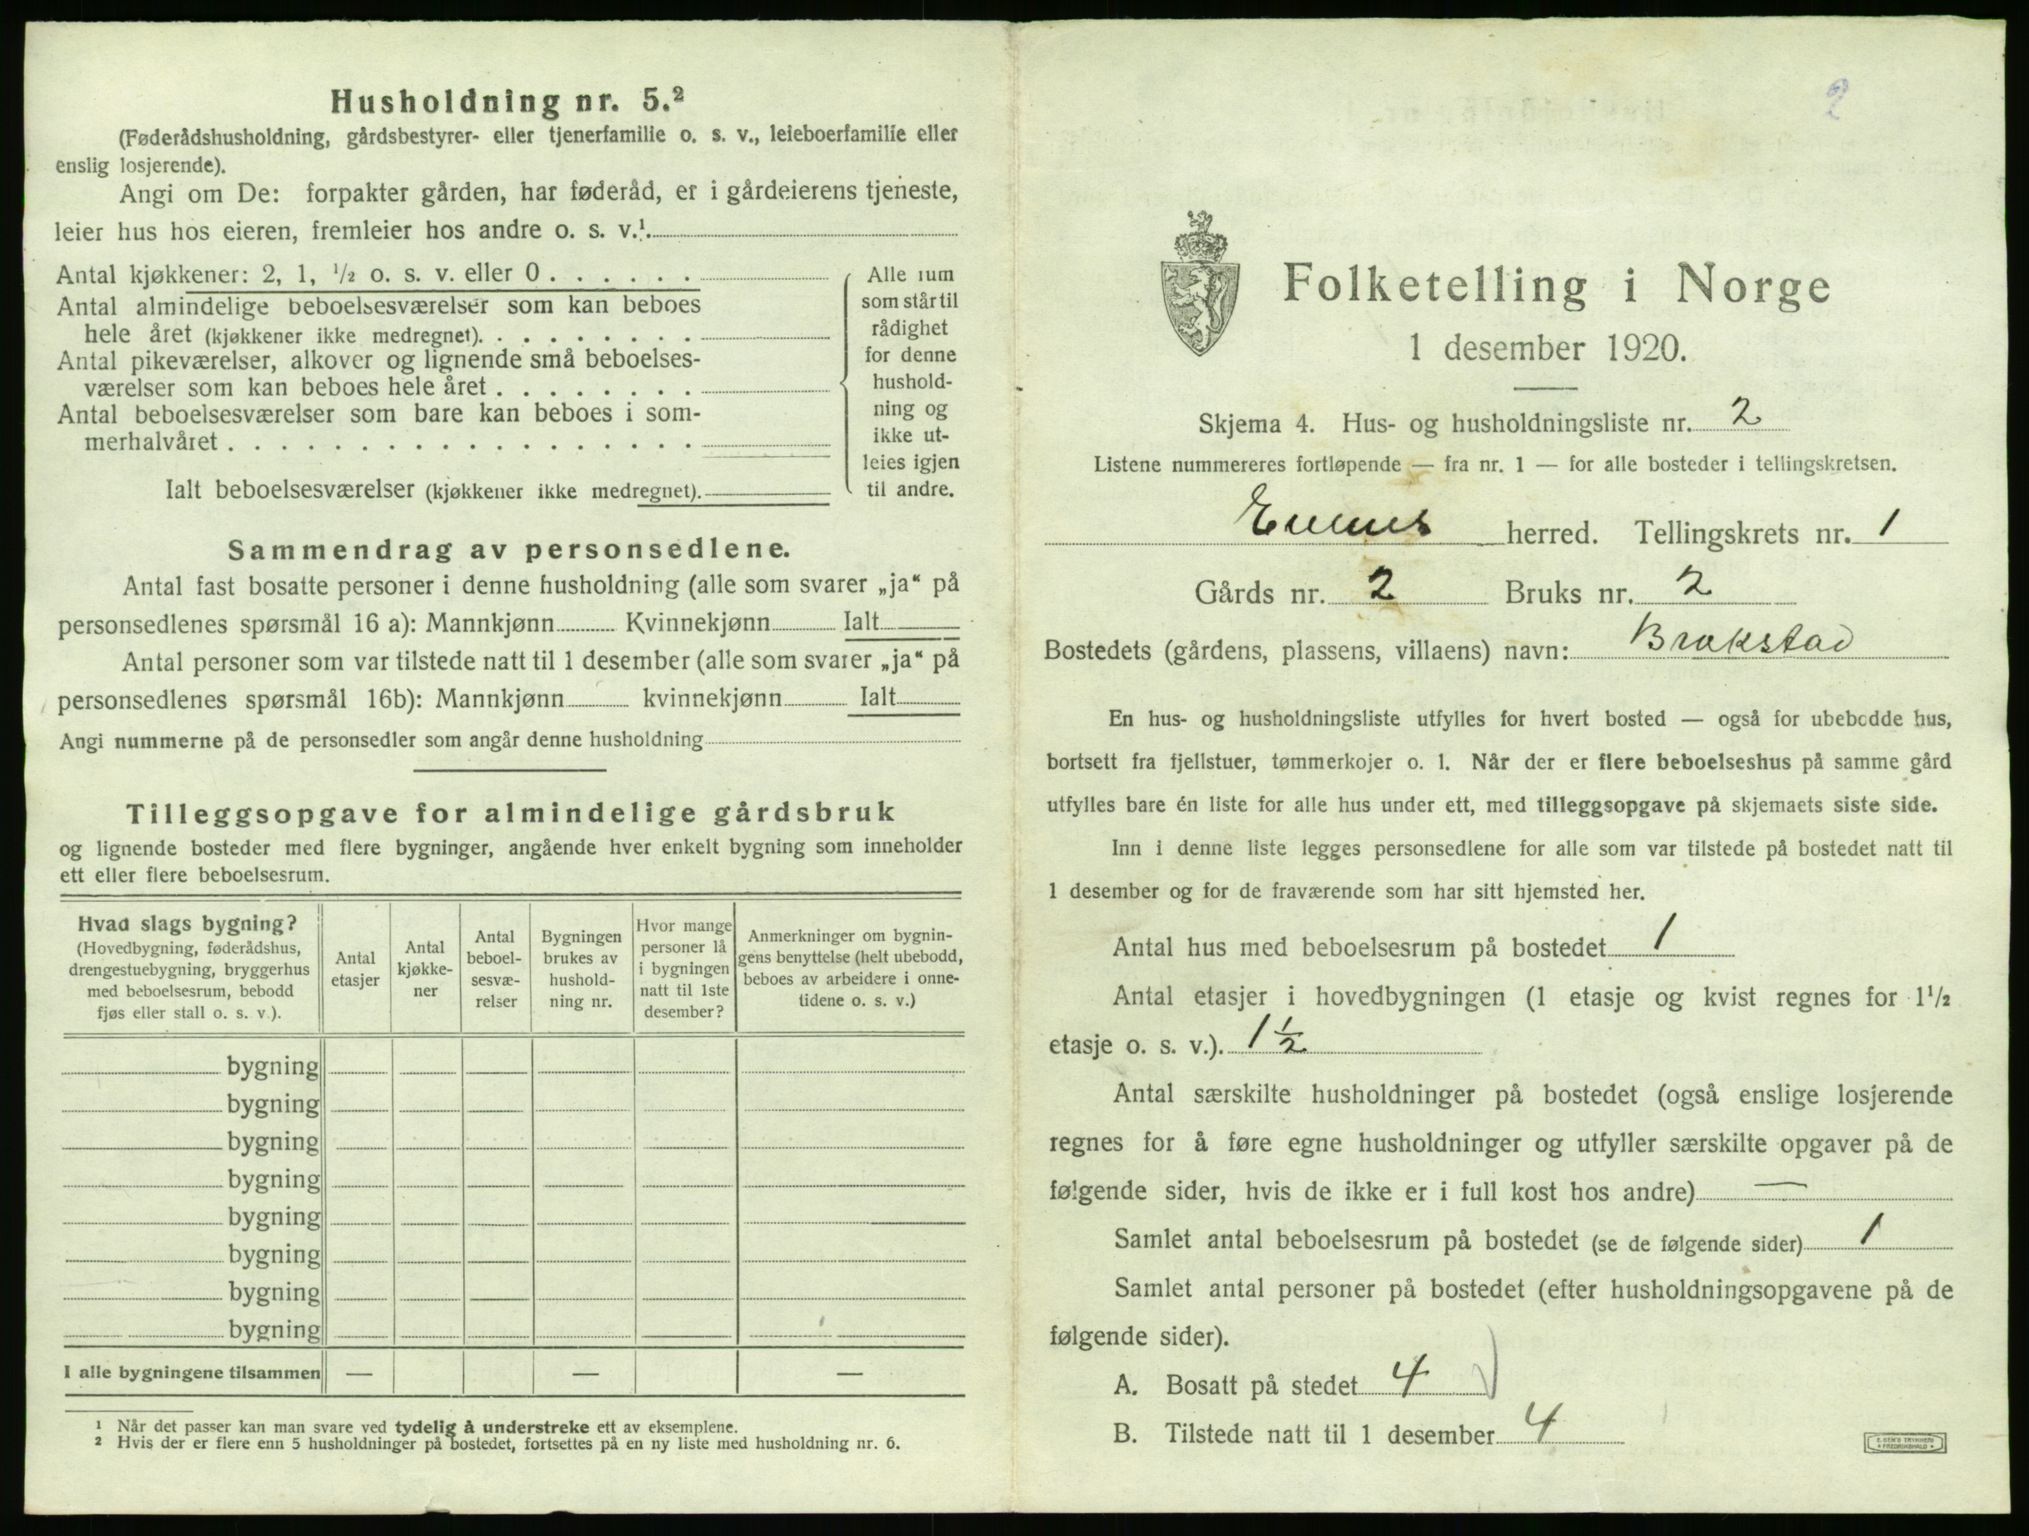 Husholdning nr. 5.²
(Føderådshusholdning, gårdsbestyrer- eller tjenerfamilie o. s. v., leieboerfamilie eller
enslig losjerende).
Angi om De: forpakter gården, har føderåd, er i gårdeierens tjeneste,
leier hus hos eieren, fremleier hos andre o. s. v.¹
Antal kjøkkener: 2, 1, ½ o. s. v. eller 0 . . . . . .
Antal almindelige beboelsesværelser som kan beboes
hele året (kjøkkener ikke medregnet). . . . . . . . .
Antal pikeværelser, alkover og lignende små beboelses-
værelser som kan beboes hele året . . . . . . . .
Antal beboelsesværelser som bare kan beboes i som-
merhalvåret . . . . . . . . . . . . . . . . . .
Ialt beboelsesværelser (kjøkkener ikke medregnet).
Alle rum
som står til
rådighet
for denne
hushold-
ning og
ikke ut-
leies igjen
til andre.
Sammendrag av personsedlene.
Antal fast bosatte personer i denne husholdning (alle som svarer „ja“ på
personsedlenes spørsmål 16 a): Mannkjønn Kvinnekjønn Ialt
Antal personer som var tilstede natt til 1 desember (alle som svarer „ja“ på
personsedlenes spørsmål 16b): Mannkjønn kvinnekjønn Ialt
Angi nummerne på de personsedler som angår denne husholdning
Tilleggsopgave for almindelige gårdsbruk
og lignende bosteder med flere bygninger, angående hver enkelt bygning som inneholder
ett eller flere beboelsesrum.
Hvad slags bygning?
(Hovedbygning, føderådshus,
drengestuebygning, bryggerhus
med beboelsesrum, bebodd
fjøs eller stall o. s. v.).
Antal
etasjer
Antal
kjøkke-
ner
Antal
beboel-
sesvæ-
relser
Bygningen
brukes av
hushold-
ning nr.
Hvor mange
personer lå
i bygningen
natt til 1ste
desember?
Anmerkninger om bygnin-
gens benyttelse (helt ubebodd,
beboes av arbeidere i onne-
tidene o. s. v.)
bygning
bygning
bygning
bygning
bygning
bygning
bygning
bygning
I alle bygningene tilsammen — — —
¹ Når det passer kan man svare ved tydelig å understreke ett av eksemplene.
² Hvis der er flere enn 5 husholdninger på bostedet, fortsettes på en ny liste med husholdning nr. 6.
2
Folketelling i Norge
1 desember 1920.
Skjema 4. Hus- og husholdningsliste nr. 2
Listene nummereres fortløpende — fra nr. 1 — for alle bosteder i tellingskretsen.
herred. Tellingskrets nr. 1
Gårds nr. 2 Bruks nr. 2
Bostedets (gårdens, plassens, villaens) navn: Brakstad
En hus- og husholdningsliste utfylles for hvert bosted — også for ubebodde hus,
bortsett fra fjellstuer, tømmerkojer o. l. Når der er flere beboelseshus på samme gård
utfylles bare én liste for alle hus under ett, med tilleggsopgave på skjemaets siste side.
Inn i denne liste legges personsedlene for alle som var tilstede på bostedet natt til
1 desember og for de fraværende som har sitt hjemsted her.
Antal hus med beboelsesrum på bostedet 1
Antal etasjer i hovedbygningen (1 etasje og kvist regnes for 1½
etasje o. s. v.). 1½
Antal særskilte husholdninger på bostedet (også enslige losjerende
regnes for å føre egne husholdninger og utfyller særskilte opgaver på de
følgende sider, hvis de ikke er i full kost hos andre) —
Samlet antal beboelsesrum på bostedet (se de følgende sider) 1
Samlet antal personer på bostedet (efter husholdningsopgavene på de
følgende sider).
A. Bosatt på stedet 4
B. Tilstede natt til 1 desember 4